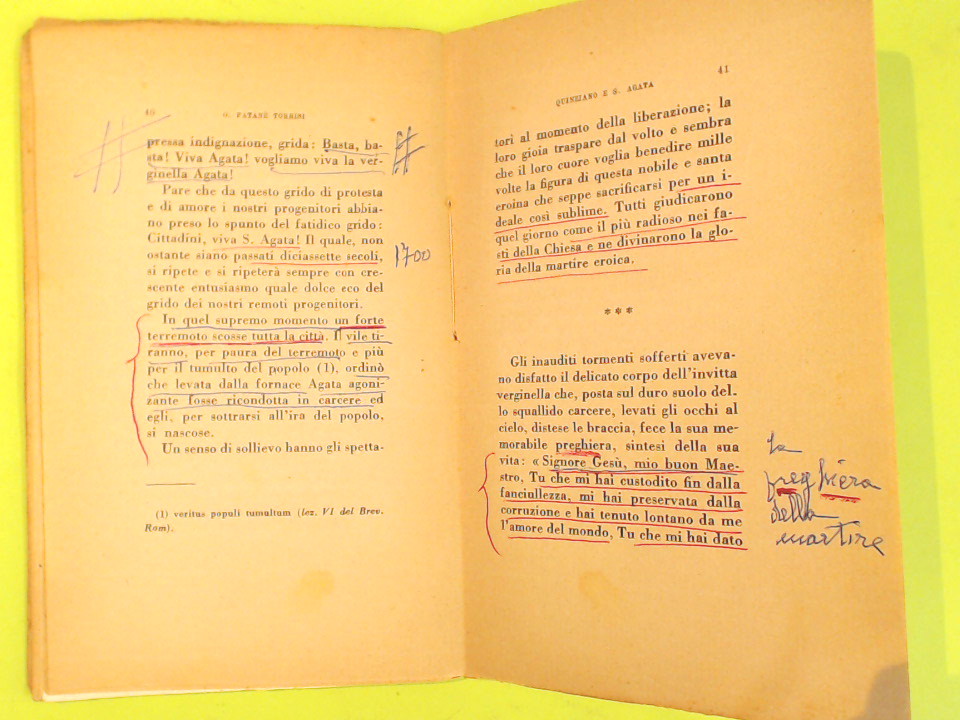 40
G. PATANÈ TORRISI
pressa indignazione, grida: Basta, ba-
sta! Viva Agata! vogliamo viva la ver-
ginella Agata!
Pare che da questo grido di protesta
e di amore i nostri progenitori abbia-
no preso lo spunto del fatidico grido:
Cittadini, viva S. Agata! Il quale, non
ostante siano passati diciassette secoli,
si ripete e si ripeterà sempre con cre-
scente entusiasmo quale dolce eco del
grido dei nostri remoti progenitori.
In quel supremo momento un forte
terremoto scosse tutta la città. Il vile ti-
ranno, per paura del terremoto e più
per il tumulto del popolo (1), ordinò
che levata dalla fornace Agata agoniz-
zante fosse ricondotta in carcere ed
egli, per sottrarsi all'ira del popolo,
si nascose.
Un senso di sollievo hanno gli spetta-
(1) veritus populi tumultum (lez. VI del Brev.
Rom).
1700
41
QUINZIANO E S. AGATA
tori al momento della liberazione; la
loro gioia traspare dal volto e sembra
che il loro cuore voglia benedire mille
volte la figura di questa nobile e santa
eroina che seppe sacrificarsi per un i-
deale così sublime. Tutti giudicarono
quel giorno come il più radioso nei fa-
sti della Chiesa e ne divinarono la glo-
ria della martire eroica.
* * *
Gli inauditi tormenti sofferti aveva-
no disfatto il delicato corpo dell'invitta
verginella che, posta sul duro suolo del-
lo squallido carcere, levati gli occhi al
cielo, distese le braccia, fece la sua me-
morabile preghiera, sintesi della sua
vita: « Signore Gesù, mio buon Mae-
stro, Tu che mi hai custodito fin dalla
fanciullezza, mi hai preservata dalla
corruzione e hai tenuto lontano da me
l'amore del mondo, Tu che mi hai dato
la
preghiera
della
martire